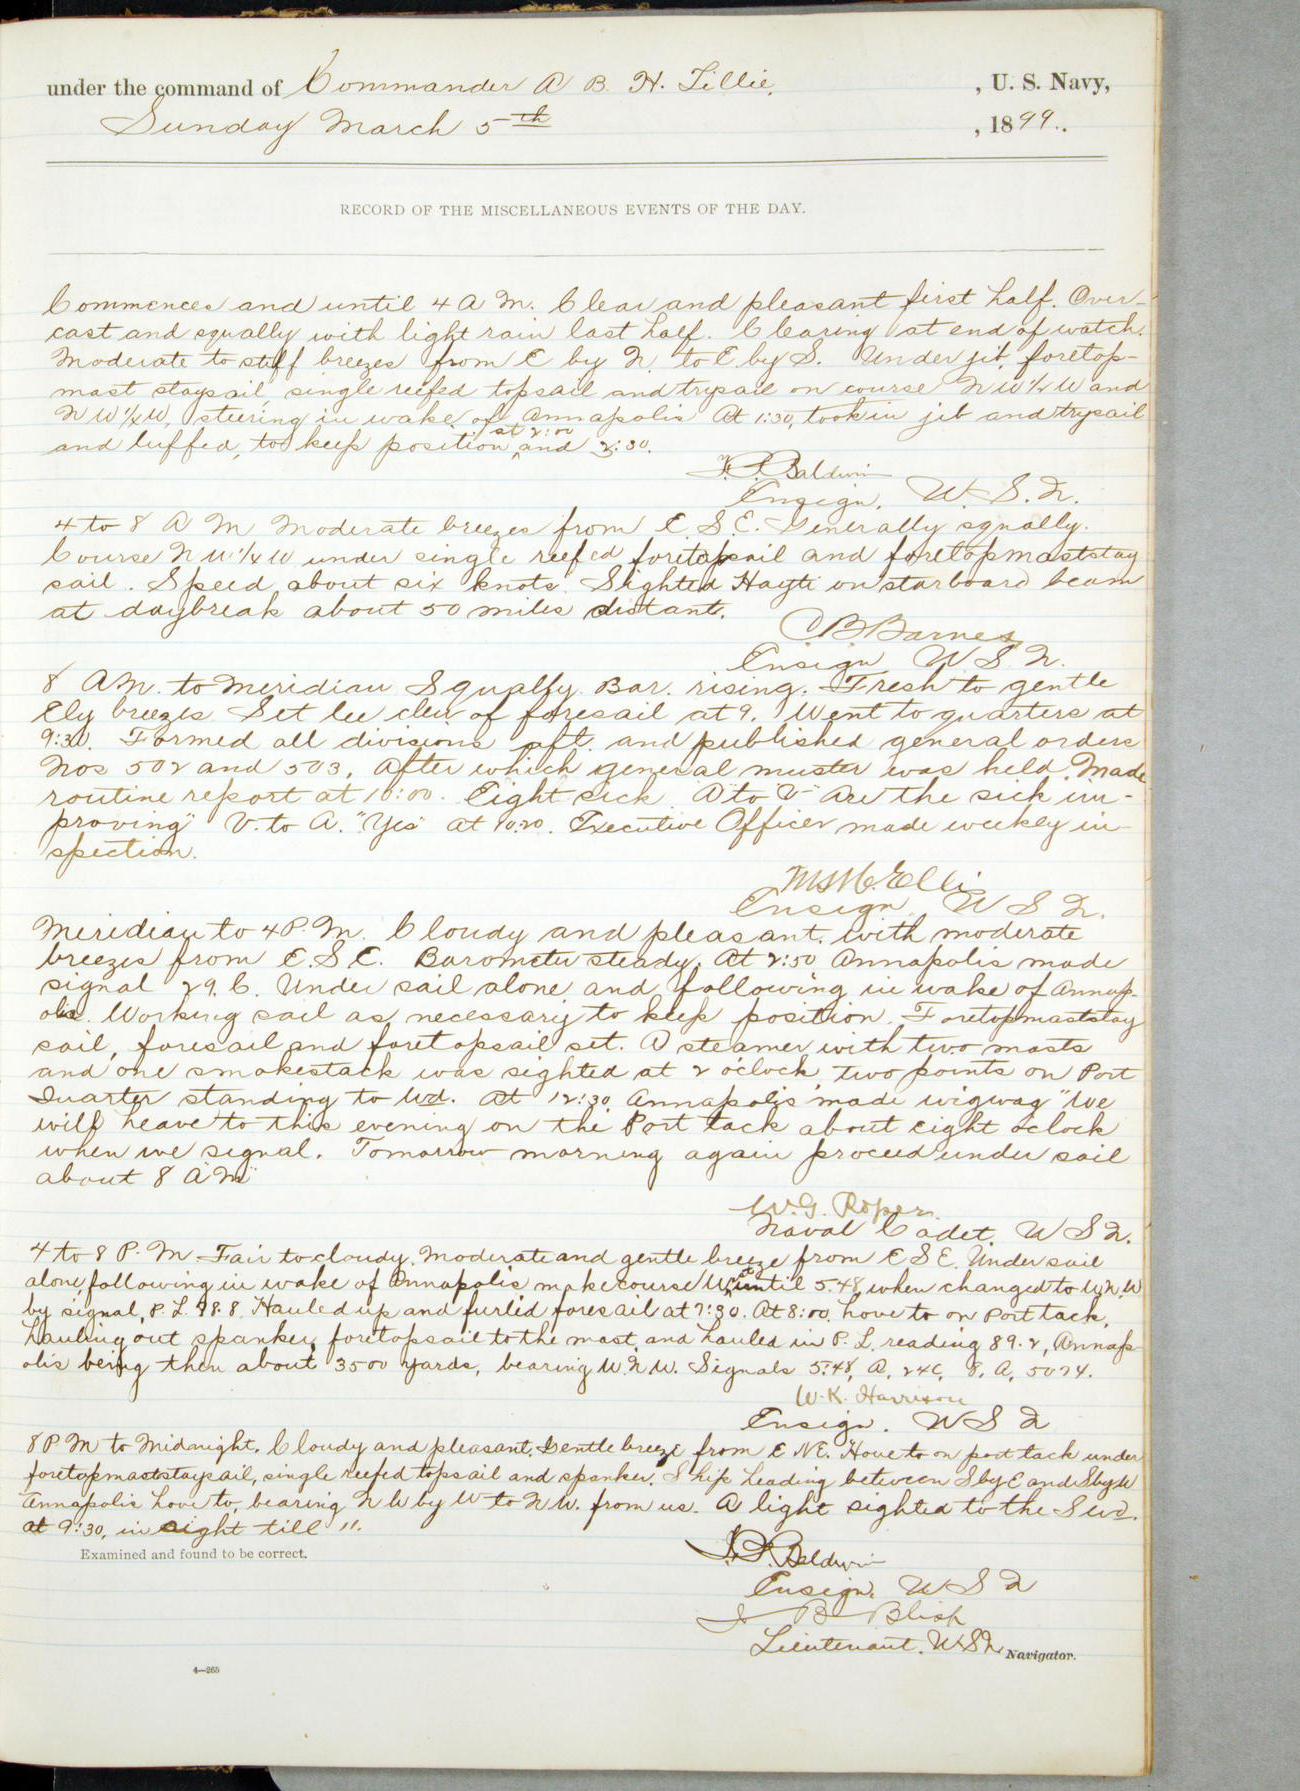 under the command of Commander A B. H. Lillie, , U. S. Navy,
Sunday March 5th , 1899.
RECORD OF THE MISCELLANEOUS EVENTS OF THE DAY.
Commences and until 4 A M. Clear and pleasant first half. Over-
cast and squally with light rain last half. Clearing at end of watch.
Moderate to stiff breezes from E by N. to E by S. Under jib, foretop-
mast staysail, single reefed topsail and trysail on course N W ¼ W and
N W ¼ W, steering in wake of Annapolis At 1:30, took in jib and trysail
and luffed, to keep position at 2:00 and 3:30.
Baldwin
Ensign, U. S. N.
4 to 8 A M Moderate breezes from E S. E. Generally squally.
Course N W ¼ W under single reefed foretopsail and foretopmaststay
sail. Speed about six knots. Sighted Hayti on starboard beam
at daybreak about 50 miles distant.
C B Barnes
Ensign U. S. N.
8 A M. to Meridian Squally. Bar. rising. Fresh to gentle
Ely breezes Set lee clew of foresail at 9. Went to quarters at
9:30. Formed all divisions aft. and published general orders
Nos 502 and 503. After which general muster was held. Made
routine report at 10:00. Eight sick. A to V "Are the sick im-
proving" V. to A. "Yes" At 10:20. Executive Officer made weekly in-
spection.
Ellis
Ensign U S N.
Meridian to 4 P. M. Cloudy and pleasant. with moderate
breezes from E. S E. Barometer steady. At 2:50 Annapolis made
signal 29. C. Under sail alone and following in wake of Annap-
olis. Working sail as necessary to keep position. Foretopmaststay
sail, foresail and foretopsail set. A steamer with two masts
and one smokestack was sighted at 2 o'clock two points on Port
Quarter standing to Wd. At 12:30 Annapolis made wigwag "We
will heave to this evening on the Port tack about eight o'clock
when we signal. Tomorrow morning again proceed under sail
about 8 A M"
W. G. Roper.
Naval Cadet, U S N.
4 to 8 P. M Fair to cloudy. Moderate and gentle breeze from E S E. Under sail
alone, following in wake of Annapolis make course until 5.48, when changed to W. N. W
by signal, P. L. 98.8. Hauled up and furled foresail at 7:30. At 8:00, hove to on Port tack,
hauling out spanker, foretopsail to the mast, and hauled in P. L. reading 89.2, Annap-
olis being then about 3500 yards, bearing W. N. W. Signals 5:48, A. 246, 8. A. 5074.
W. K. Harrison
Ensign. U S N
8 P M to Midnight. Cloudy and pleasant. Gentle breeze from E NE. Hove to on port tack under
foretopmaststaysail, single reefed topsail and spanker. Ship heading between S by E and S by W
Annapolis hove to, bearing N W by W to N W. from us. A light sighted to the Swd.
at 9:30, in sight till 11.
Examined and found to be correct.
Baldwin
Ensign, U S N
J B Blish
Lieutenant. U. S. N. Navigator.
4—265